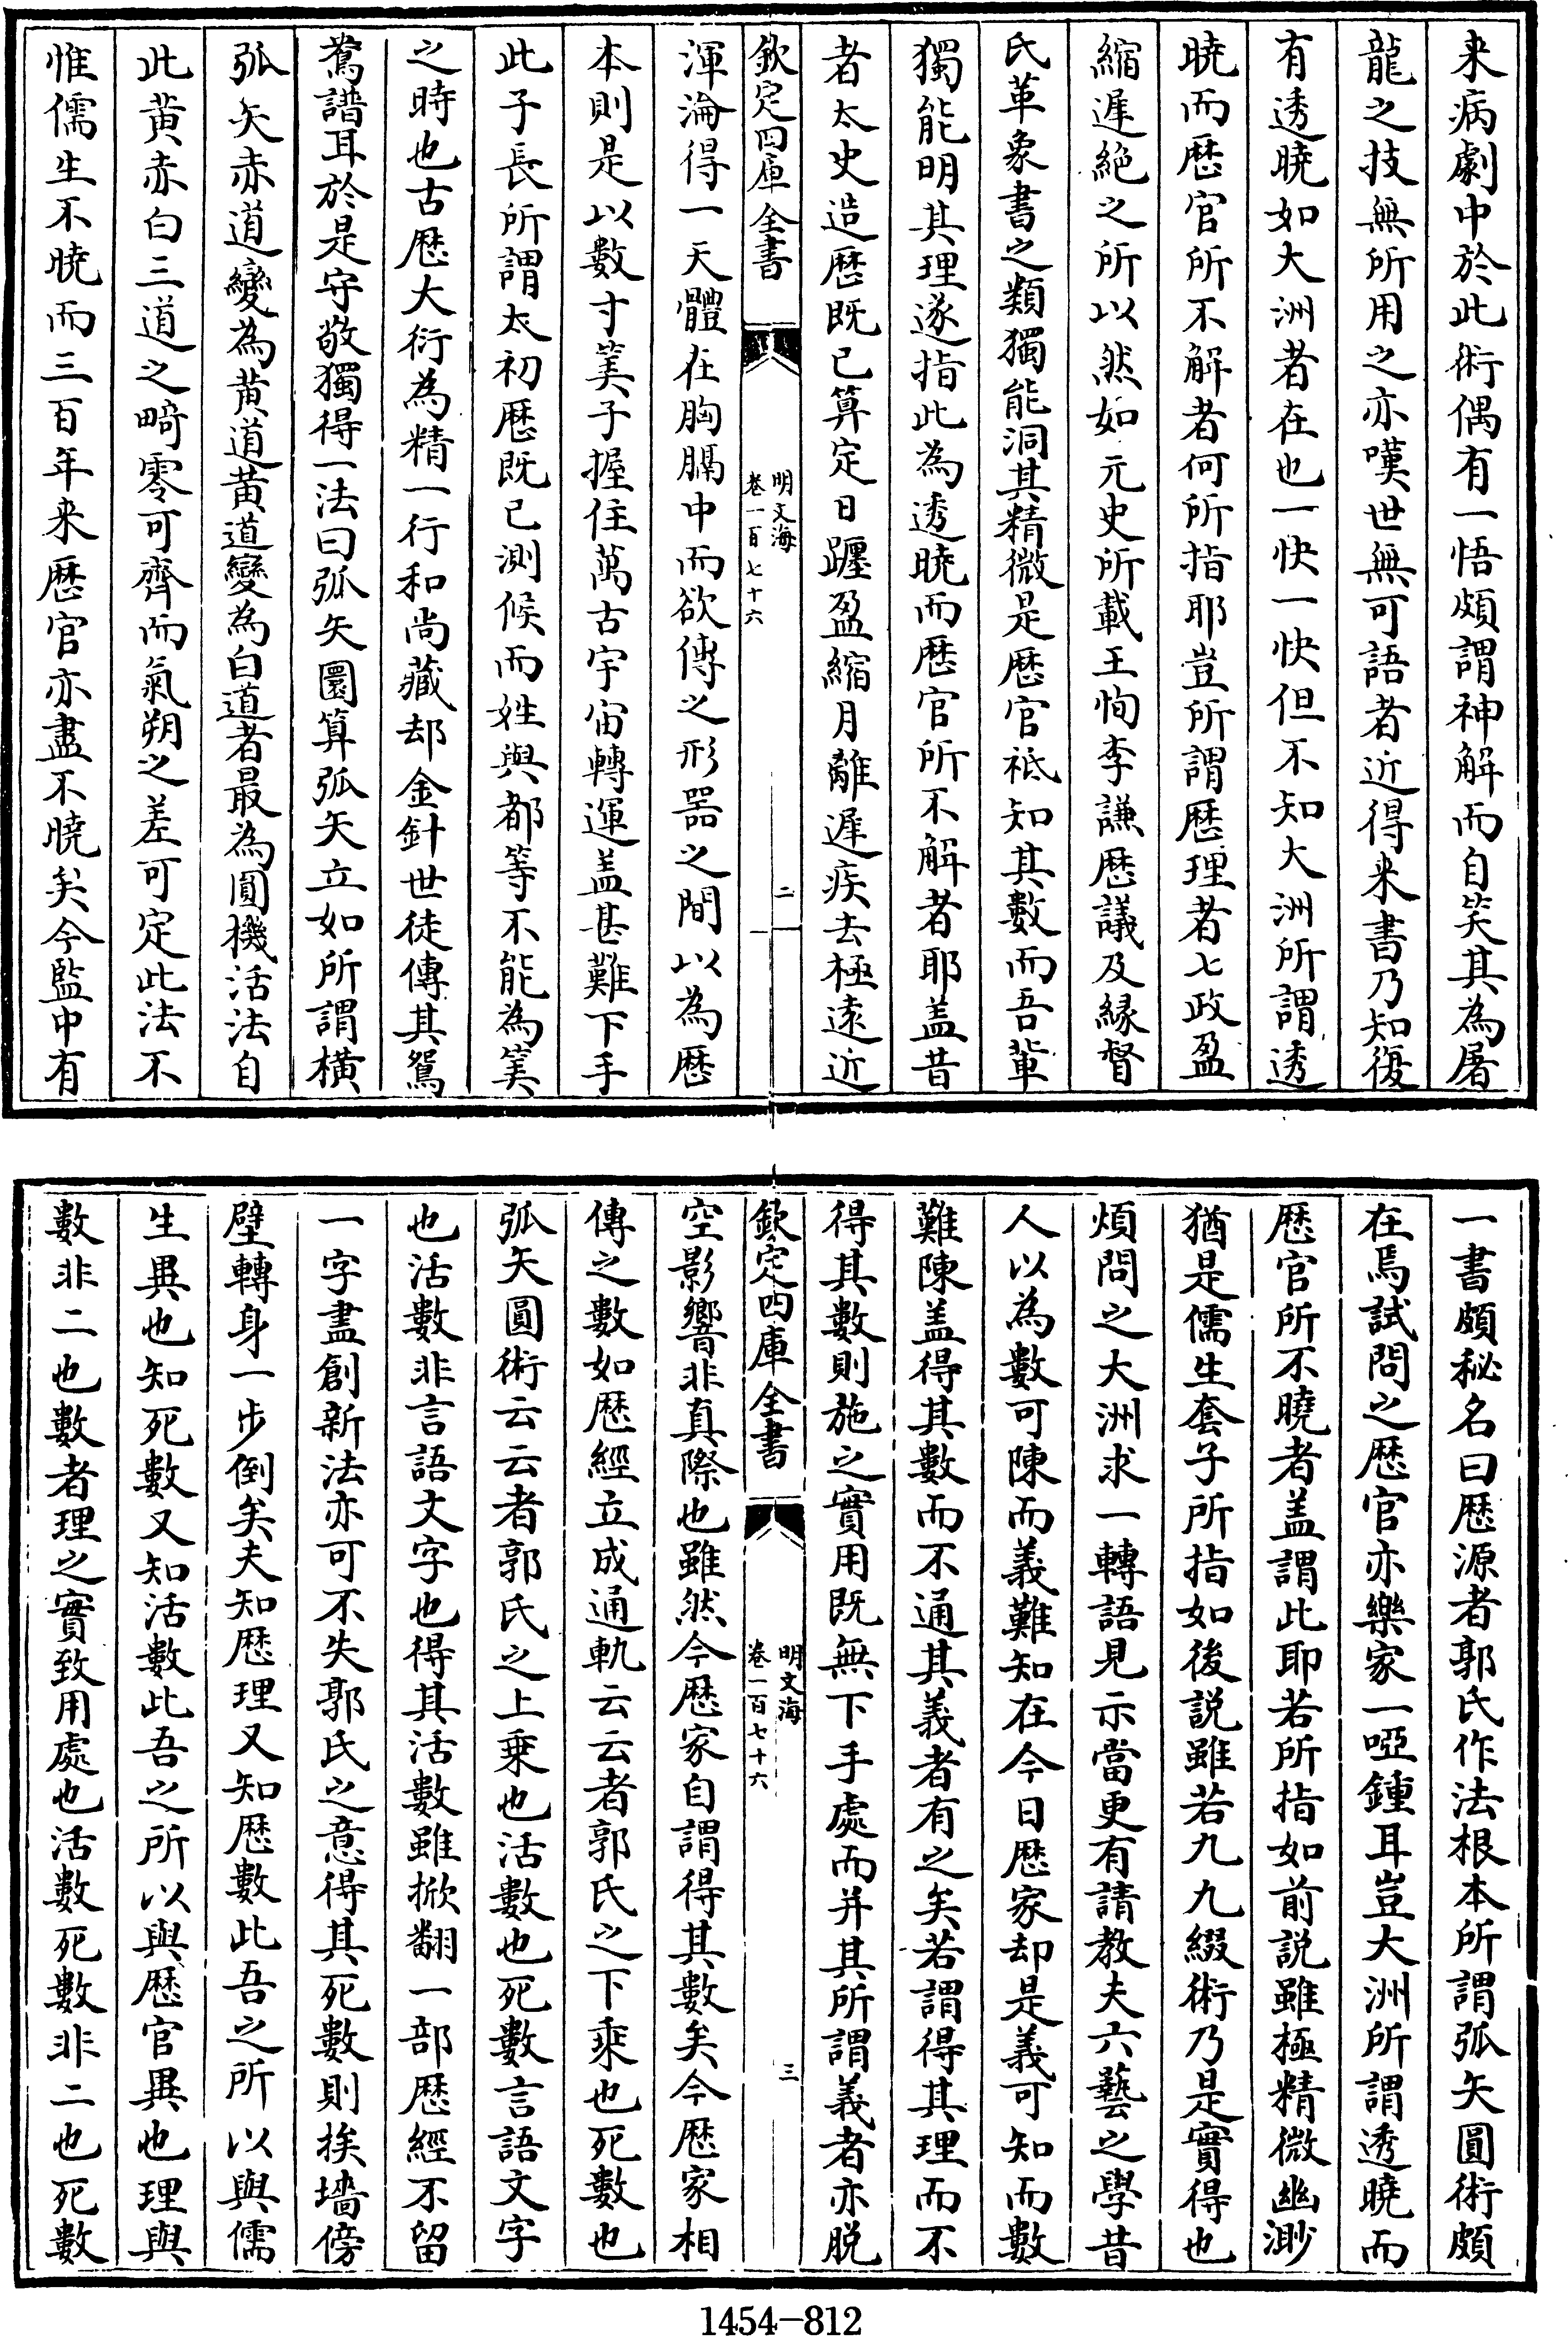 来病劇中於此術偶有一悟頗謂神解而自笑其為屠
龍之技無所用之亦嘆世無可語者近得来書乃知復
有透曉如大洲者在也一快一快但不知大洲所謂透
曉而厯官所不解者何所指耶豈所謂厯理者七政盈
縮遲絶之所以然如元史所載王恂李謙厯議及緣督
氏革象書之類獨能洞其精微是厯官祗知其數而吾輩
獨能明其理遂指此為透曉而厯官所不解者耶盖昔
者太史造厯既已算定日躔盈縮月離遲疾去極逺近
欽定四庫全書
明文海
卷一百七十六
二
渾淪得一天體在胸膈中而欲傳之形器之間以為厯
本則是以數寸筭子握住萬古宇宙轉運盖甚難下手
此子長所謂太初厯既已測候而姓與都等不能為筭
之時也古厯大衍為精一行和尚藏却金針世徒傳其鴛
鴦譜耳於是守敬獨得一法曰弧矢圜算弧矢立如所謂橫
弧矢赤道變為黄道黄道變為白道者最為圓機活法自
此黄赤白三道之畸零可齊而氣朔之差可定此法不
惟儒生不曉而三百年来厯官亦盡不曉矣今監中有
一書頗秘名曰厯源者郭氏作法根本所謂弧矢圓術頗
在焉試問之厯官亦樂家一啞鍾耳豈大洲所謂透曉而
厯官所不曉者盖謂此耶若所指如前説雖極精微幽渺
猶是儒生套子所指如後説雖若九九綴術乃是實得也
煩問之大洲求一轉語見示當更有請教夫六藝之學昔
人以為數可陳而義難知在今日厯家却是義可知而數
難陳盖得其數而不通其義者有之矣若謂得其理而不
得其數則施之實用既無下手處而并其所謂義者亦脱
欽定四庫全書
明文海
卷一百七十六
三
空影響非真際也雖然今厯家自謂得其數矣今厯家相
傳之數如厯經立成通軌云云者郭氏之下乘也死數也
弧矢圓術云云者郭氏之上乗也活數也死數言語文字
也活數非言語文字也得其活數雖掀翻一部厯經不留
一字盡創新法亦可不失郭氏之意得其死數則挨墻傍
壁轉身一步倒矣夫知厯理又知厯數此吾之所以與儒
生異也知死數又知活數此吾之所以與厯官異也理與
數非二也數者理之實致用處也活數死數非二也死數
1454-812